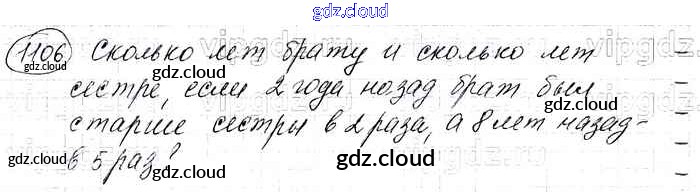 gdz.cloud
1106 Сколько лет брату и сколько лет
gdz.cloud
gdz.cloud
сестре, если 2 года назад брат был
gdz.cloud
старше сестры в 2 раза, а 8 лет назад -
gdz.cloud
gdz.cloud
в 5 раз?
gdz.cloud
gdz.cloud